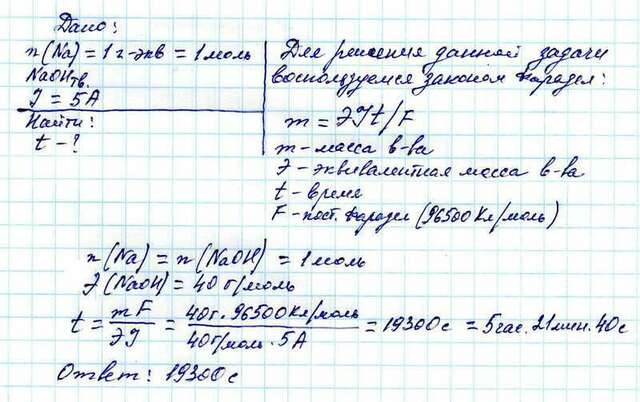 Дано:
n(Na) = 1 г-экв = 1 моль
NaOH тв.
J = 5 A
Найти:
t - ?
Для решения данной задачи
воспользуемся законом Фарадея:
m = ЭJt/F
m - масса в-ва
Э - эквивалентная масса в-ва
t - время
F - пост. Фарадея (96500 Кл/моль)
n(Na) = n(NaOH) = 1 моль
Э(NaOH) = 40 г/моль
t = mF/ЭJ = 40г. 96500 Кл/моль/40 г/моль · 5 A = 19300 с = 5 час. 21 мин. 40 с
Ответ: 19300 с